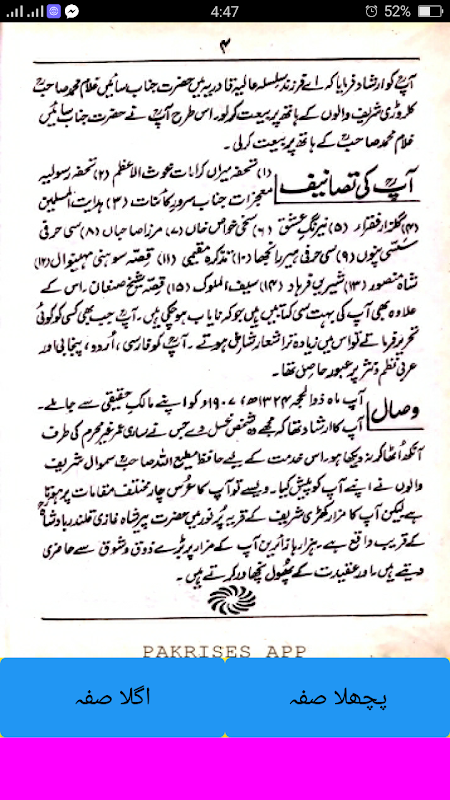 4:47
52%
۳
آپؒ کو ارشاد فرمایا کہ اے فرزند سلسلہ عالیہ قادریہ میں حضرت جناب سائیں غلام محمد صاحبؒ
کلروڑی شریف والوں کے ہاتھ پر بیعت کر لو۔ اس طرح آپؒ نے حضرت جناب سائیں
غلام محمد صاحبؒ کے ہاتھ پر بیعت کرلی۔
آپؒ کی تصانیف
(۱) تحفہ میراں کرامات غوث الاعظم (۲) تحفہ رسولیہ
معجزات جناب سرور کائنات (۳) ہدایت المسلمین
(۴) گلزار فقراء (۵) نیرنگ عشق (۶) سخی خواص خاں (۷) مرزا صاحباں (۸) سی حرفی
سسی پنوں (۹) سی حرفی ہیر رانجھا (۱۰) تذکرہ مقیمی (۱۱) قصّہ سوہنی مہینوال (۱۲)
شاہ منصور (۱۳) شیریں فرہاد (۱۴) سیف الملوک (۱۵) قصّہ شیخ صنعان۔ اس کے
علاوہ بھی آپ کی بہت سی کتابیں ہیں جو کہ نایاب ہو چکی ہیں۔ آپؒ جب بھی کسی کو کوئی
تحریر فرماتے تو اس میں زیادہ تر اشعار شامل ہوتے۔ آپؒ کو فارسی، اُردو، پنجابی اور
عربی نظم و نثر پر عبور حاصل تھا۔
وصال
آپ ماہ ذوالحجہ ۱۳۲۴ھ، ۱۹۰۷ء کو اپنے مالک حقیقی سے جا ملے۔
آپ کا ارشاد تھا کہ مجھے وہ شخص غسل دے جس نے ساری عمر غیر محرم کی طرف
آنکھ اُٹھا کر نہ دیکھا ہو۔ اس خدمت کے لیے حافظ مطیع اللہ صاحبؒ سموال شریف
والوں نے اپنے آپ کو پیش کیا۔ ویسے تو آپ کا عرس چار مختلف مقامات پر ہوتا
ہے لیکن آپ کا مزار کھڑی شریف کے قریہ پُر نور میں حضرت پیر شاہ غازی قلندر بادشاہؒ
کے قریب واقع ہے۔ ہزارہا زائرین آپ کے مزار پر بڑے ذوق و شوق سے حاضری
دیتے ہیں۔ اور عقیدت کے پھول نچھاور کرتے ہیں۔
PAKRISES APP
پچھلا صفہ
اگلا صفہ